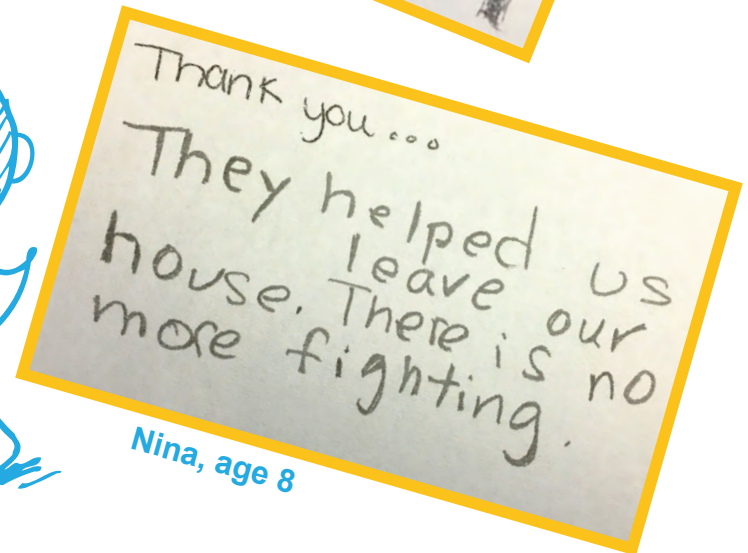 Thank you...
They helped us
leave our
house. There is no
more fighting.
Nina, age 8